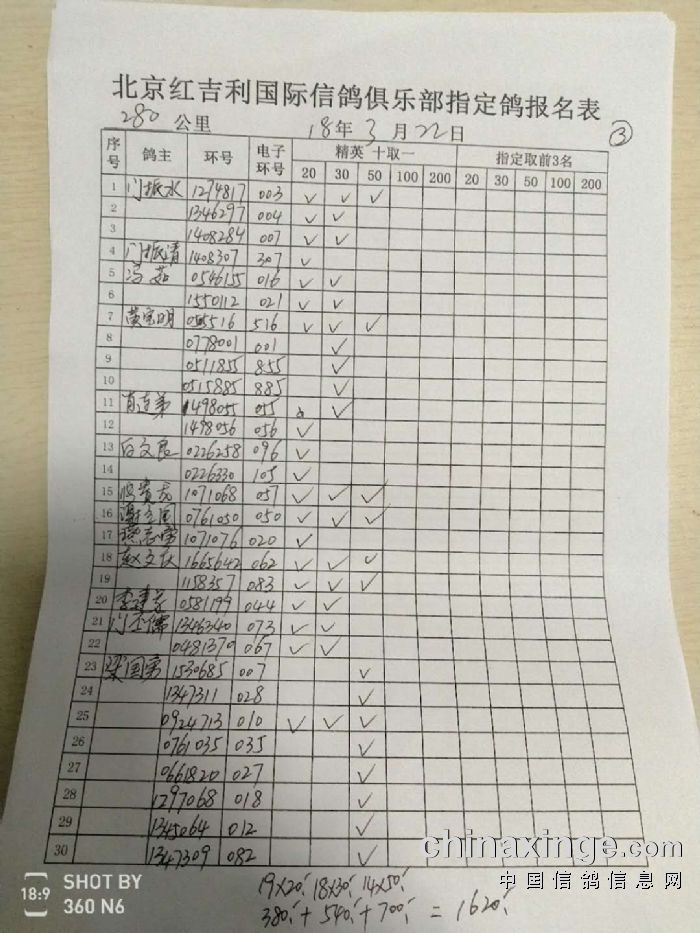 北京红吉利国际信鸽俱乐部指定鸽报名表
280 公里 18年 3 月 22 日 ③
序号 鸽主 环号 电子环号 精英 十取一 指定取前3名
20 30 50 100 200 20 30 50 100 200
1 门振水 1274817 003 ✓ ✓ ✓
2 1346297 004 ✓ ✓
3 1408284 007 ✓ ✓
4 门振清 1408307 307 ✓
5 冯茹 0546155 016 ✓ ✓
6 1550112 021 ✓ ✓
7 黄宝明 055516 516 ✓ ✓ ✓
8 0778001 001 ✓
9 0511855 855 ✓
10 0515885 885 ✓
11 肖连弟 1498055 055 ✓
12 1498056 056 ✓
13 白文良 0226258 096 ✓
14 0226330 105 ✓
15 1071068 057 ✓ ✓ ✓
16 0761050 050 ✓ ✓ ✓
17 1071076 020 ✓
18 赵文 1665642 062 ✓ ✓ ✓
19 1158357 083 ✓ ✓ ✓
20 李建 0581199 044 ✓ ✓
21 门 1346340 073 ✓ ✓
22 0481370 067 ✓ ✓
23 梁国弟 1530685 007 ✓
24 1347311 028 ✓
25 0924713 010 ✓ ✓ ✓
26 0761035 035 ✓
27 0661820 027 ✓
28 1297068 018 ✓
29 1345064 012 ✓
30 1347309 082 ✓
19×20 18×30 14×50
380 + 540 + 700 = 1620
chinaxinge.com
中国信鸽信息网
18:9 SHOT BY
360 N6